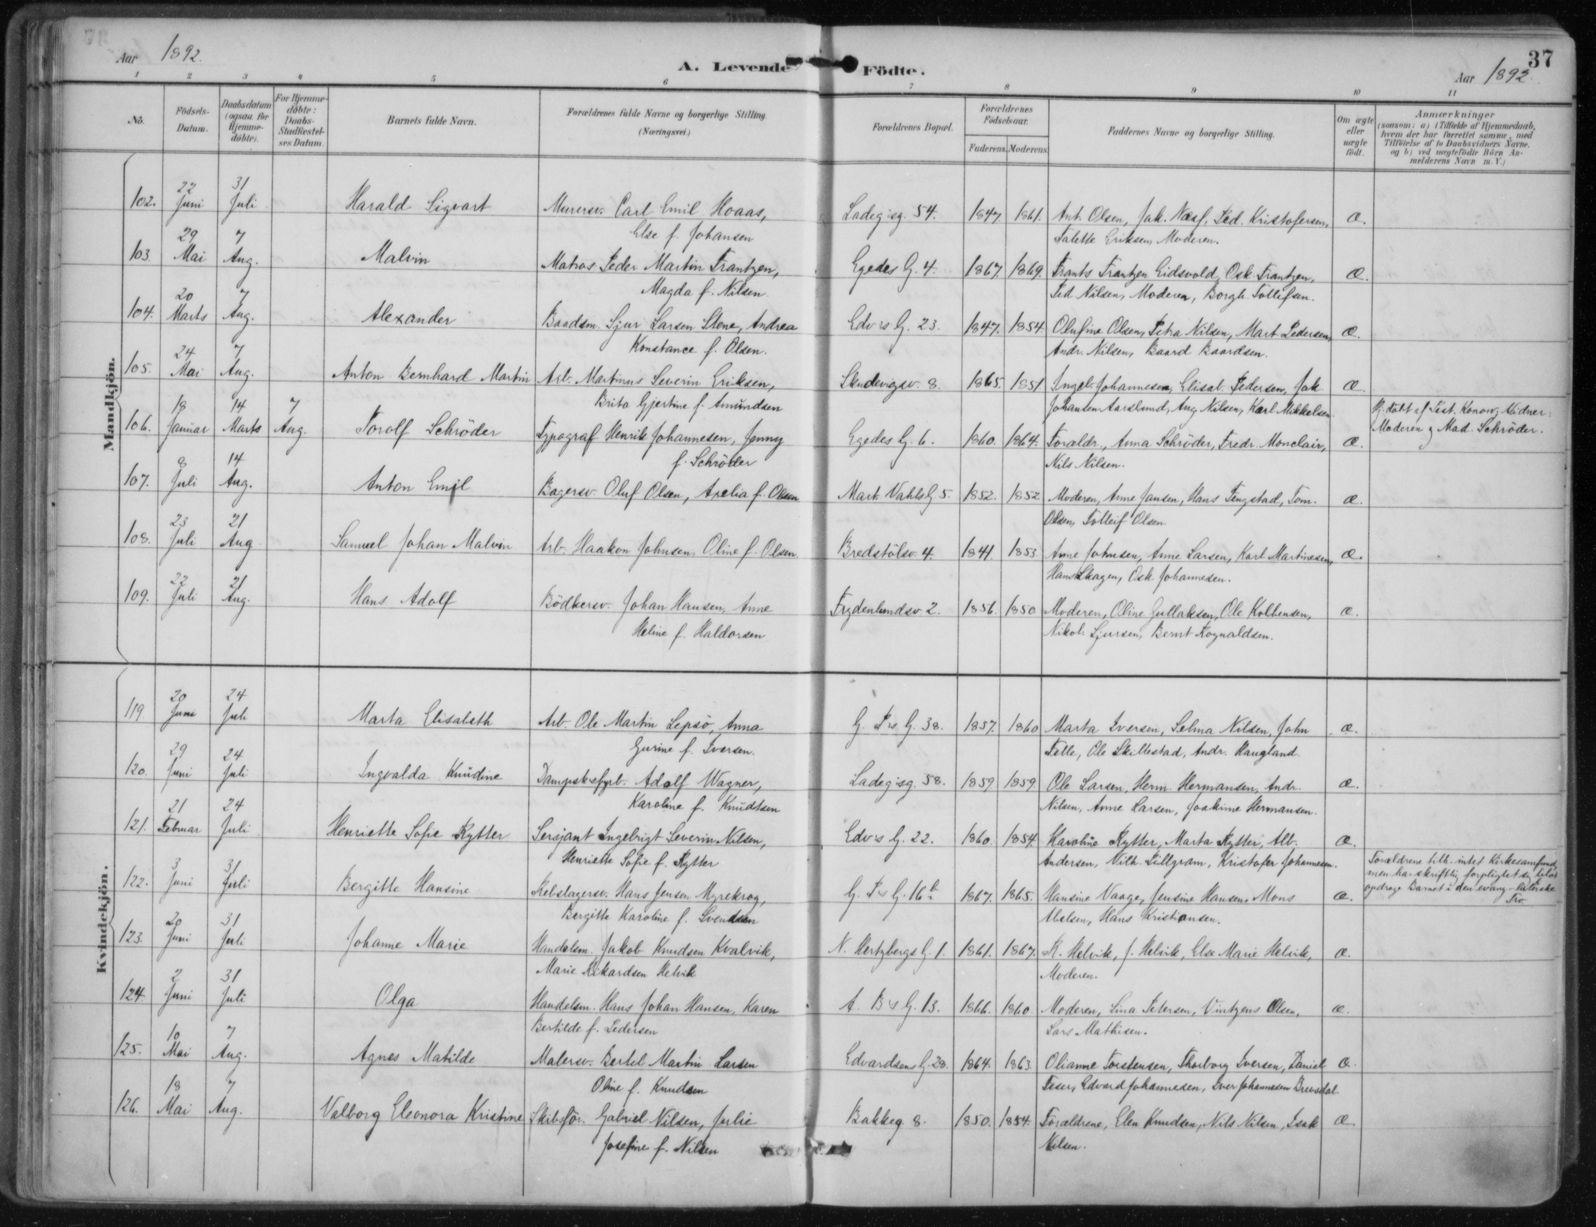 37
Aar 1892. A. Levende Fødte. Aar 1892.
1 2 3 4 5 6 7 8 9 10 11
No. Fødsels-Datum. Daabsdatum (ogsaa for Hjemmedøbte). For Hjemmedøbte: Daabs-Stadfæstelses Datum. Barnets fulde Navn. Forældrenes fulde Navne og borgerlige Stilling. (Næringsvei.) Forældrenes Bopæl. Forældrenes Fødselsaar. Faderens. Moderens. Faddernes Navne og borgerlige Stilling. Om ægte eller uægte født. Anmærkninger
Mandkjøn.
102. 22 Juni 31 Juli Harald Sigvart Murersv. Carl Emil Hoaas, Ladegsg. 54. 1847 1861. Ant. Olsen, Jak. Næss, Ped. Kristofersen, æ.
Else f. Johansen Talette Eriksen, Moderen.
103 29 Mai 7 Aug. Malvin Matros Peder Martin Frantzen, Egedes G. 4. 1867 1869. Frants Frantzen Eidsvold, Osk. Frantzen, æ.
Magda f. Nilsen Ped. Nilsen, Moderen, Borgh. Tollefsen.
104. 20 Marts 7 Aug. Alexander Baadsm. Sjur Larsen Stene, Andrea Edv's G. 23. 1847. 1854 Olufine Olsen, Petra Nilsen, Mart. Pedersen, æ.
Konstance f. Olsen. Andr. Nilsen, Baard Baardsen.
105. 24 Mai 7 Aug. Anton Bernhard Martin Arb. Martinus Severin Eriksen, 8. 1865. 1851 Ingeb. Johannesen, Elisab. Pedersen, Jak. æ
Brita Gjertine f. Amundsen Johansen Aarslund, Aug. Nilsen, Karl Mikkelsen
106. 18 Januar 14 Marts 7 Aug. Torolf Schrøder Typograf Henrik Johannesen, Jenny Egedes G. 6. 1860. 1864. Forældr., Anna Schrøder, Fredr. Monclair, æ. Hj. døbt af Pest. Konow, Vidner:
f. Schrøder Nils Nilsen. Moderen & Mad. Schrøder.
107. 8 Juli 14 Aug. Anton Emil Bagersv. Oluf Olsen, Axelia f. Olsen Mark. VahlsG 5. 1852. 1852 Moderen, Anne Jansen, Hans Tengstad, Tom. æ.
Olsen, Tolleif Olsen
108. 23 Juli 21 Aug Samuel Johan Malvin Arb. Haakon Johnsen, Oline f. Olsen. Bredstølsv. 4. 1841. 1853 Anne Johnsen, Anne Larsen, Karl Martinesen, æ.
Hans Skagen, Osk. Johannesen.
109. 22 Juli 21 Aug. Hans Adolf Bødkersv. Johan Hansen, Anne Frydenlundsv. 2. 1856. 1850 Moderen, Oline Gullaksen, Ole Kolbensen, æ.
Heline f. Haldorsen Nikol. Sjursen, Bernt Rognaldsen.
Kvindekjøn.
119 20 Juni 24 Juli Marta Elisabeth Arb. Ole Martin Lepsø, Anna G. Prs. G. 38. 1857. 1860 Marta Iversen, Selma Nilsen, John æ.
Gurine f. Iversen. Telle, Ole Skillestad, Andr. Haugland.
120. 29 Juni 24 Juli Ingvalda Knudine Dampskbsfyrb. Adolf Wagner, Ladegsg. 58. 1859. 1859. Ole Larsen, Herm. Hermansen, Andr. æ.
Karoline f. Knudtsen Nilsen, Anne Larsen, Joakime Hermansen.
121. 21 Februar 24 Juli Henriette Sofie Rytter Sersjant Ingebrigt Severin Nilsen, Edv's G. 22. 1860. 1854. Karoline Rytter, Marta Rytter, Alb. æ.
Henriette Sofie f. Rytter Andersen, Vilh. Lillgram, Kristofer Johannesen.
122. 3 Juni 31 Juli Bergitte Hansine Rebslagersv. Hans Jensen Myrekrog, G. Prs G. 16b 1867. 1865. Hansine Vaage, Jensine Hansen, Mons æ. Forældrene tilh. intet Kirkesamfund, men har skriftlig forpligtet sig til at opdrage Barnet i den evang.-lutherske Tro.
Bergitte Karoline f. Svendsen Abelsen, Hans Kristiansen.
123. 20 Juni 31 Juli Johanne Marie Handelsm. Jakob Knudsen Kvalvik, N. Hertzbergs G. 1. 1861. 1867. K. Helvik, J. Helvik, Else Marie Helvik, æ.
Marie Rikardsen Helvik Moderen.
124. 2 Juni 31 Juli Olga Handelsm. Hans Johan Hansen, Karen A. B's G. 13. 1866. 1860. Moderen, Lina Petersen, Vintzens Olsen, æ.
Bertilde f. Pedersen Lars Mathisen.
125. 10 Mai 7 Aug. Agnes Matilde Malersv. Bertel Martin Larsen Edvardsens G. 28. 1864. 1863. Olianne Torstensen, Thorborg Iversen, Daniel æ.
Oline f. Knudsen Teser, Edvard Johannesen, Iver Johannesen Brevsdal.
126. 18 Mai 7 Aug. Valborg Eleonora Kristine Skibsfør. Gabriel Nilsen, Julie Bakkeg. 8. 1850. 1854. Forældrene, Elen Knudsen, Nils Nilsen, Isak æ.
Josefine f. Nilsen Nilsen.